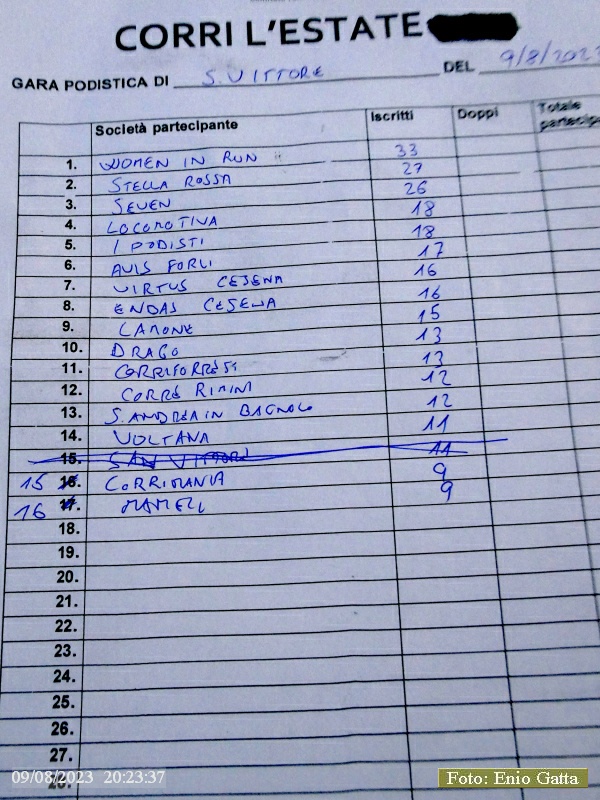 CORRI L'ESTATE
GARA PODISTICA DI S. VITTORE DEL 9/8/2023
Società partecipante Iscritti Doppi Totale
1. WOMEN IN RUN 33
2. STELLA ROSSA 27
3. SEVEN 26
4. LOCOMOTIVA 18
5. I PODISTI 18
6. AVIS FORLI 17
7. VIRTUS CESENA 16
8. ENDAS CESENA 16
9. LAMONE 15
10. DRAGO 13
11. CORRIFORRESI 13
12. CORRE RIMINI 12
13. S. ANDREA IN BAGNOLO 12
14. VOLTANA 11
15. SAN VITTORE 11
15 16. CORRIMANIA 9
16 17. MAMELI 9
18.
19.
20.
21.
22.
23.
24.
25.
26.
27.
28.
09/08/2023 20:23:37
Foto: Enio Gatta